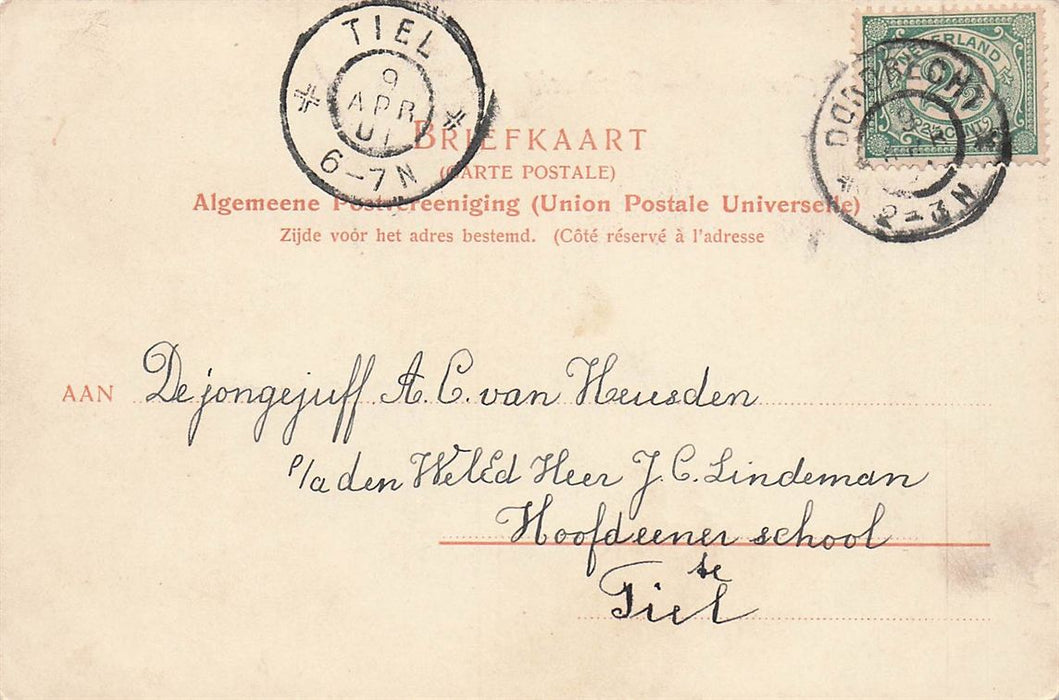 TIEL
9
APR
01
6-7N
NEDERLAND
2½
DORDRECHT
2-3N
BRIEFKAART
(CARTE POSTALE)
Algemeene Postvereeniging (Union Postale Universelle)
Zijde voór het adres bestemd. (Côté réservé à l'adresse
AAN De jongejuff A. C. van Heusden
p/a den WelEd Heer J. C. Lindeman
Hoofdeener school
te
Tiel